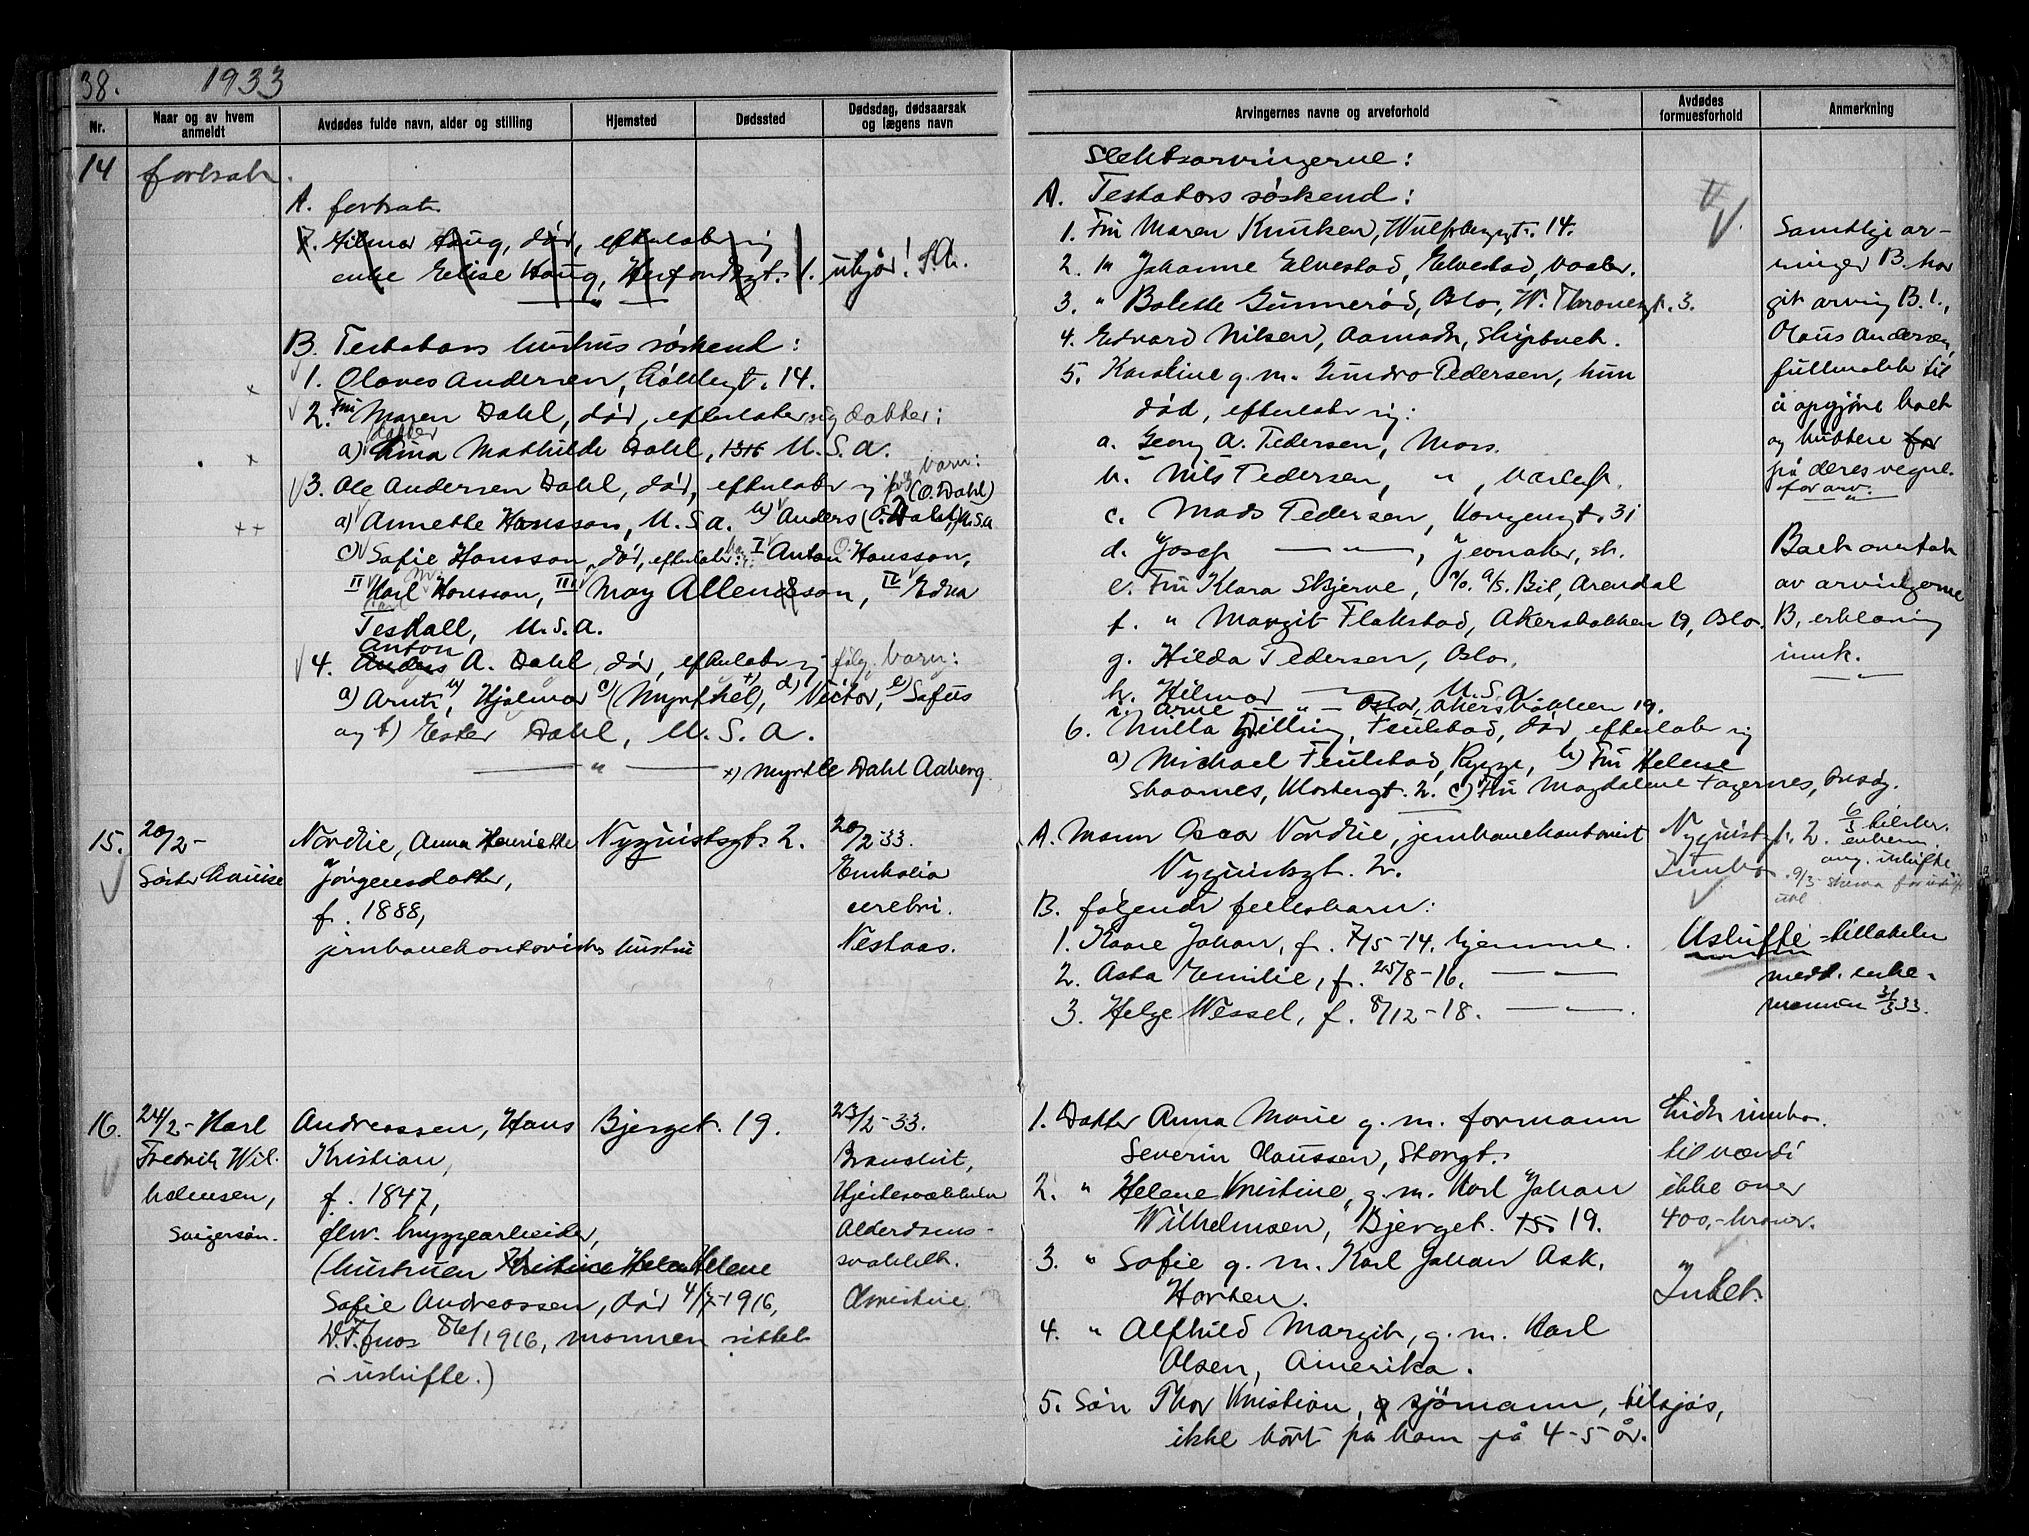 38. 1933
Nr.
Naar og av hvem anmeldt
Avdødes fulde navn, alder og stilling
Hjemsted
Dødssted
Dødsdag, dødsaarsak og lægens navn
14 fortsat.
A. fortsat.
7. Hilmar Haug, død, efterlater sig
enke Elise Haug, utgjør! S.A.
B. Testators hustrus søskend:
1. Olaves Andersen, 14.
2. Fru Maren Dahl, død, efterlater sig datter:
a) Mathilde Dahl, U.S.A.
3. Ole Andersen Dahl, død, efterlater sig følg. barn: (O. Dahl)
a) Annette Hansson, U.S.A. b) Anders (O. Dahl), U.S.A.
c) Sofie Hansson, død, efterlater: I Anton O. Hansson,
II Karl Hansson, III May Allenson, IV Edna
Teskall, U.S.A.
Anton
4. Anders A. Dahl, død, efterlater sig følg. barn:
a) Arnt, b) Hjalmar c) (Myrthel +), d) Victor, e) Sofus
og f) Ester Dahl, U.S.A.
— " — +) Myrtle Dahl Aaberg.
15. 20/2 -
Søster Louise
Nordlie, Anna Henriette
Jørgensdatter,
f. 1888,
jernbanekontorists hustru
Nyquistsgt. 2.
20/2-33.
Embolia
cerebri.
Nestaas.
16. 24/2 - Karl
Fredrik Wil-
helmsen,
Svigersøn.
Andreassen, Hans
Kristian,
f. 1847,
fhv. bryggearbeider,
(hustruen Kristine Helen Helene
Sofie Andreassen, død 4/7-1916,
1916, mannen sittet
i uskifte.)
Bjerget. 19.
23/2-33.
Hjertesvækkelse
Alderdoms-
svakhet.
Christie.
Arvingernes navne og arveforhold
Avdødes formuesforhold
Anmerkning
Slektsarvingerne:
A. Testators søskend:
1. Fru Maren Knutsen, Wulfsbergsgt. 14.
2. " Johanne Elvestad, Elvestad, Vaaler.
3. " Bolette Gunnerød, Oslo, W. Thranesgt. 3.
4. Edvard Nilsen, Aamodt, Skiptvet.
5. Karoline g.m. Gundro Pedersen, hun
død, efterlater sig:
a. Georg A. Pedersen, Moss.
b. Nils Pedersen, " , Varlof.
c. Mads Pedersen, Kongensgt. 31
d. Josef — " — , Jevnaker, st.
e. Fru Klara Skjerve, c/o. A/S. Bil, Arendal
f. " Margit Flakstad, Akersbakken 19, Oslo.
g. Hilda Pedersen, Oslo.
h. Hilmar — " — U.S.A.
i. Arne — " — Oslo, Akersbakken 19.
6. Milla Dilling, Feulstad, død, efterlater sig
a) Michael Feulstad, Rygge, b) Fru Helene
Skaarnes, Klostergt. 2. c) Fru Magdalene Fagernes, Onsøy.
Samtlige ar-
vinger B. har
git arving B. 1.,
Olaus Andersen,
fullmakt til
å opgjøre boet
og kvittere for
på deres vegne.
for arv.
— " —
Boet overtatt
av arvingerne
B, erklæring
innk.
— " —
A. Mann Oscar Nordlie, jernbanekontorist
Nyquistsgt. 2.
B. følgende fellesbarn:
1. Kaare Johan, f. 7/5-14. hjemme.
2. Asta Emilie, f. 25/8-16. — " —
3. Helge Wessel, f. 8/12-18. — " —.
Nyquistgt. 2.
Innbo
6/3 tilskr.
enkem.
ang. uskifte
9/3 skema for uskifte
utl
Uskifte-tillatelse
medd. enke-
mannen 31/3 33.
1. Datter Anna Marie g.m. formann
Severin Claussen, Storgt.
2. " Helene Kristine, g.m. Karl Johan
Wilhelmsen, Bjerget. 19.
3. " Sofie g.m. Karl Johan Ask,
Horten.
4. " Alfhild Margit, g.m. Karl
Olsen, Amerika.
5. Søn Thor Kristian, sjømann, tilsjøs,
ikke hørt fra ham på 4-5 år.
Litt innbo.
til værdi
ikke over
400,- kroner.
Intet.